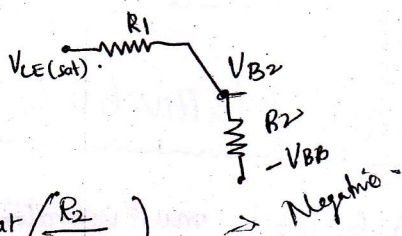 R1
VCE(sat).
VB2
B2
-VBB
at (R2) → Negative -